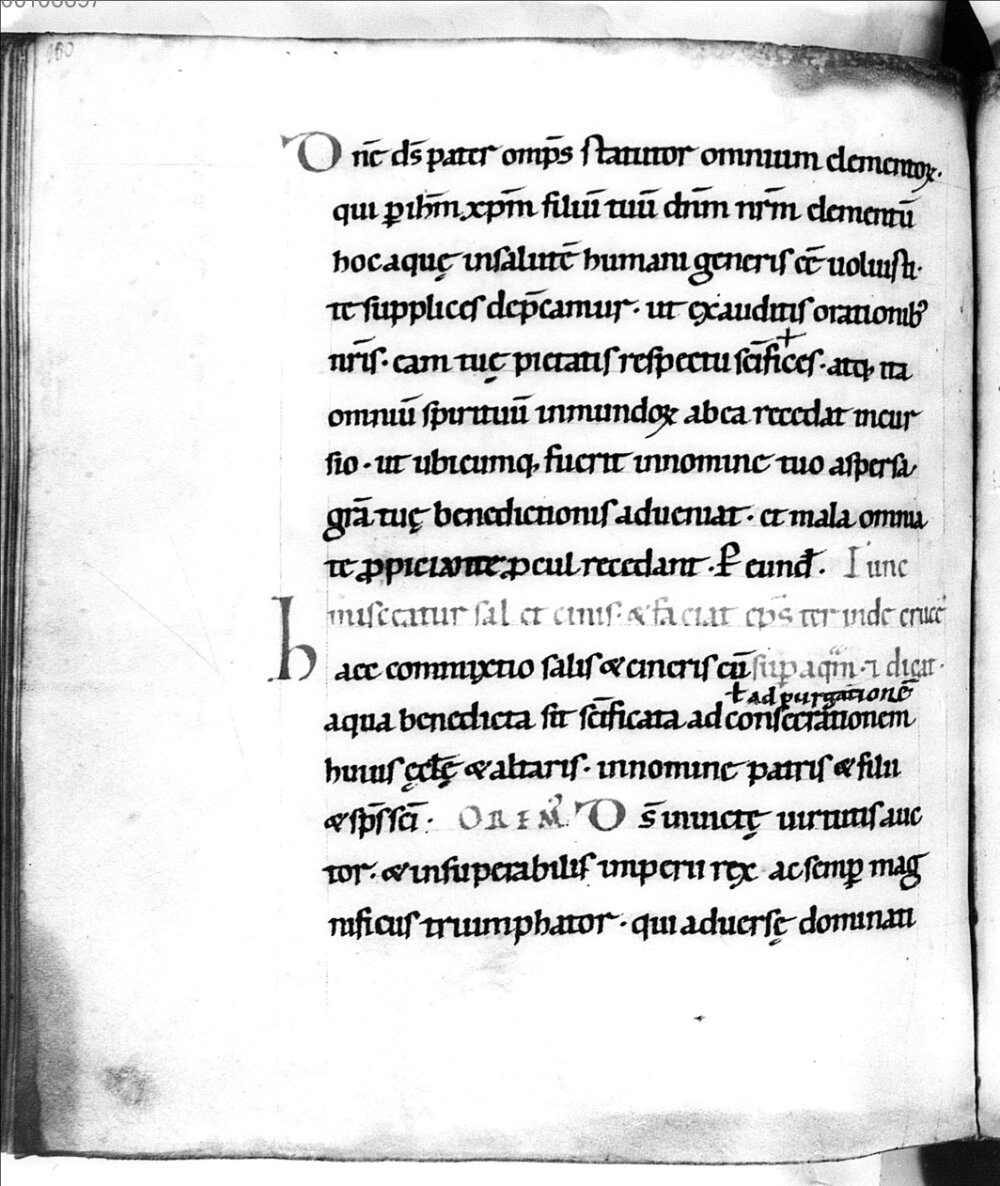 Dn̄e ds̄ pater omp̄s statutor omnium elementoꝝ.
qui ꝑ ihm̄ xp̄m filiū tuū dn̄m nr̄m elementū
hoc aquę insalutē humani generis eē uoluisti.
te supplices dep̄camur. ut exauditis orationibꝰ
nr̄is. eam tuę pietatis respectu sc̄ifi+ces. atq; ita
omniū spirituū inmundoꝝ ab ea recedat incur
sio. ut ubicumq; fuerit innomine tuo aspersa
grā tuę benedictionis adueniat. et mala omnia
te ꝓpiciante ꝓcul recedant. P̄ eund̄. Tunc
misceatur sal et cinis. & faciat ep̄s ter inde crucē
haec commixtio salis & cineris cū sup aquā. ⁊ dicat.
ł ad purgationē
aqua benedicta sit sc̄ificata ad consecrationem
huius ęcclę & altaris. innomine patris & filii
& sp̄s sc̄i. OREM̄. Ds̄ inuictę uirtutis auc
tor. & insuperabilis imperii rex ac semꝑ mag
nificus triumphator. qui aduersę dominati